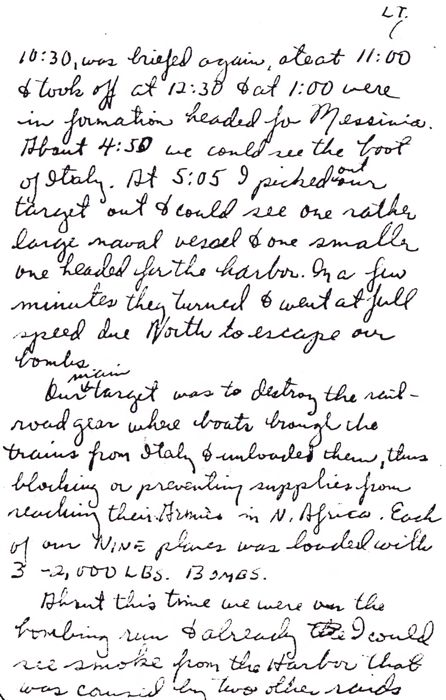 LT.
10:30, was briefed again, ate at 11:00
& took off at 12:30 & at 1:00 were
in formation headed for Messinia.
About 4:50 we could see the boot
of Italy. At 5:05 I picked out our
target out & could see one rather
large naval vessel & one smaller
one headed for the harbor. In a few
minutes they turned & went at full
speed due North to escape our
bombs.
Our main target was to destroy the rail-
road gear where boats brough the
trains from Italy & unloaded them, thus
blocking or preventing supplies from
reaching their Armies in N. Africa. Each
of our NINE planes was loaded with
3 - 2,000 LBS. BOMBS.
About this time we were on the
bombing run & already I could
see smoke from the Harbor that
was caused by two other raids